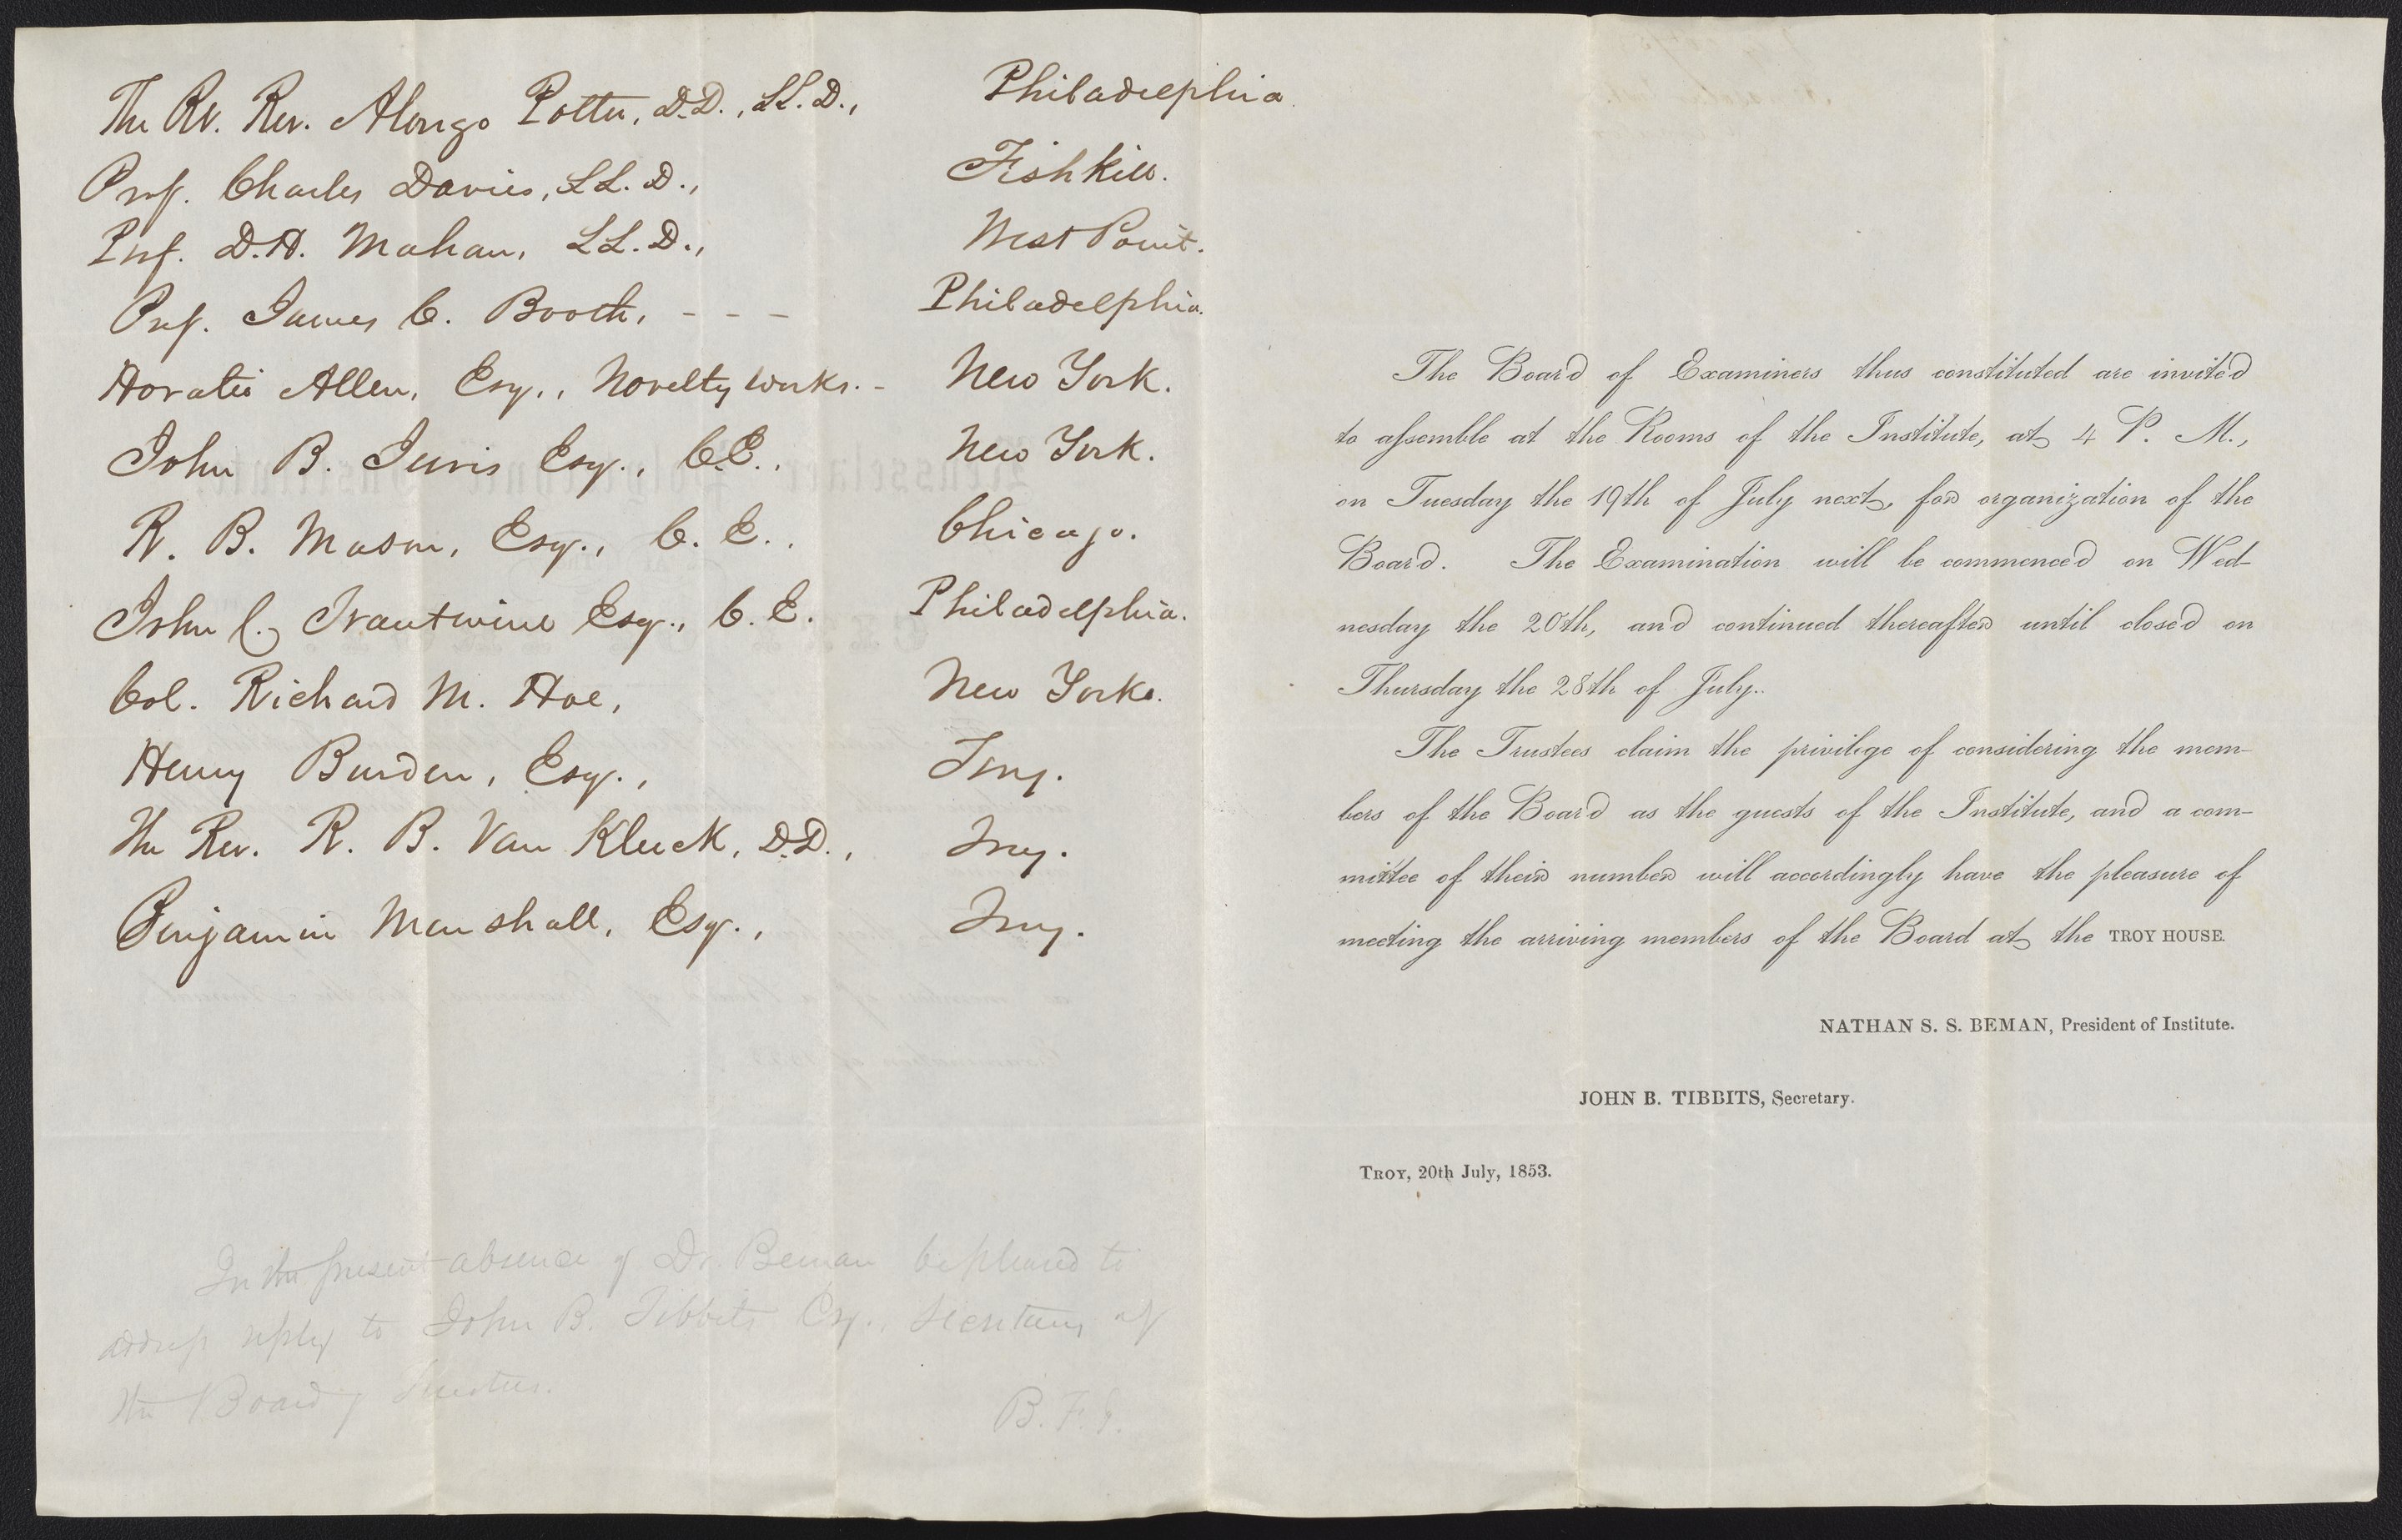 The Rt. Rev. Alonzo Potter, D.D., LL.D., Philadelphia
Prof. Charles Davies, LL.D., Fishkill.
Prof. D.H. Mahan, LL.D., West Point.
Prof. James C. Booth, - - - Philadelphia.
Horatio Allen, Esq., Novelty Works. - New York.
John B. Jervis Esq., C.E., New York.
R. B. Mason, Esq., C. E., Chicago.
John C. Trautwine Esq., C. E. Philadelphia.
Col. Richard M. Hoe, New York.
Henry Burden, Esq., Troy.
The Rev. R. B. Van Kleeck, D.D., Troy.
Benjamin Marshall, Esq., Troy.
In the present absence of Dr. Beman be pleased to
address reply to John B. Tibbits Esq., Secretary of
the Board of Trustees.
B. F. G.
The Board of Examiners thus constituted are invited
to assemble at the Rooms of the Institute, at 4 P. M.,
on Tuesday the 19th of July next, for organization of the
Board. The Examination will be commenced on Wed-
nesday the 20th, and continued thereafter until closed on
Thursday the 28th of July.
The Trustees claim the privilege of considering the mem-
bers of the Board as the guests of the Institute, and a com-
mittee of their number will accordingly have the pleasure of
meeting the arriving members of the Board at the TROY HOUSE.
NATHAN S. S. BEMAN, President of Institute.
JOHN B. TIBBITS, Secretary.
TROY, 20th July, 1853.